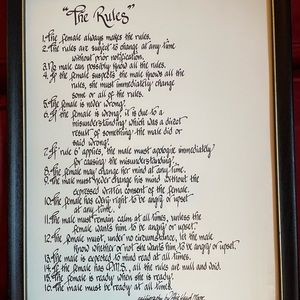 "The Rules"
1. The female always makes the rules.
2. The rules are subject to change at any time
without prior notification.
3. No male can possibly know all the rules.
4. If the female suspects the male knows all the
rules, she must immediately change
some or all of the rules.
5. The female is never wrong.
6. If the female is wrong, it is due to a
misunderstanding which was a direct
result of something the male did or
said wrong.
7. If rule 6 applies, the male must apologize immediately
for causing the misunderstanding.
8. The female may change her mind at any time.
9. The male must never change his mind without the
expressed written consent of the female.
10. The female has every right to be angry or upset
at any time.
11. The male must remain calm at all times, unless the
female wants him to be angry or upset.
12. The female must, under no circumstance, let the male
know whether or not she wants him to be angry or upset.
13. The male is expected to mind read at all times.
14. If the female has P.M.S., all the rules are null and void.
15. The female is ready when she is ready.
16. The male must be ready at all times.
calligraphy by